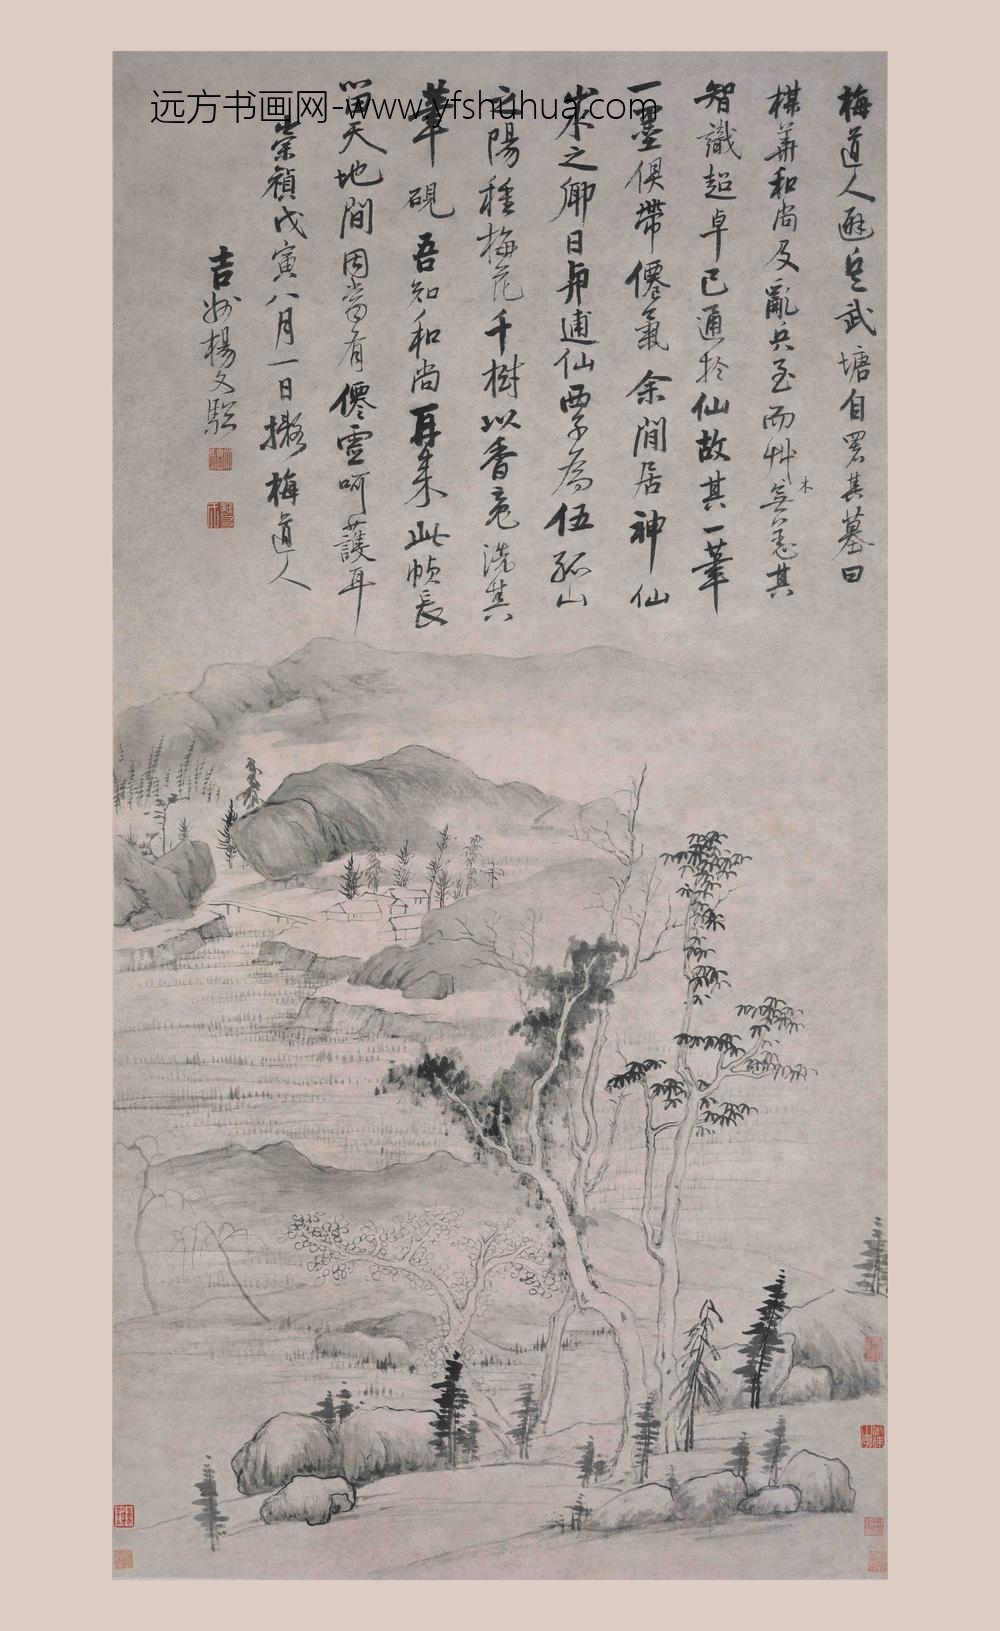 梅道人避兵武塘自署其墓曰
楳華和尚及亂兵至而艸木無恙其
智識超卓已通於仙故其一筆
一墨俱帶僊氣余閒居神仙
之鄉日與逋仙西子為伍孤山
之陽種梅花千樹以香亮洗其
筆硯吾知和尚再來此幀長
留天地間固當有僊靈呵護耳
崇禎戊寅八月一日擬梅道人
吉州楊文驄
远方书画网-www.yfshuhua.com